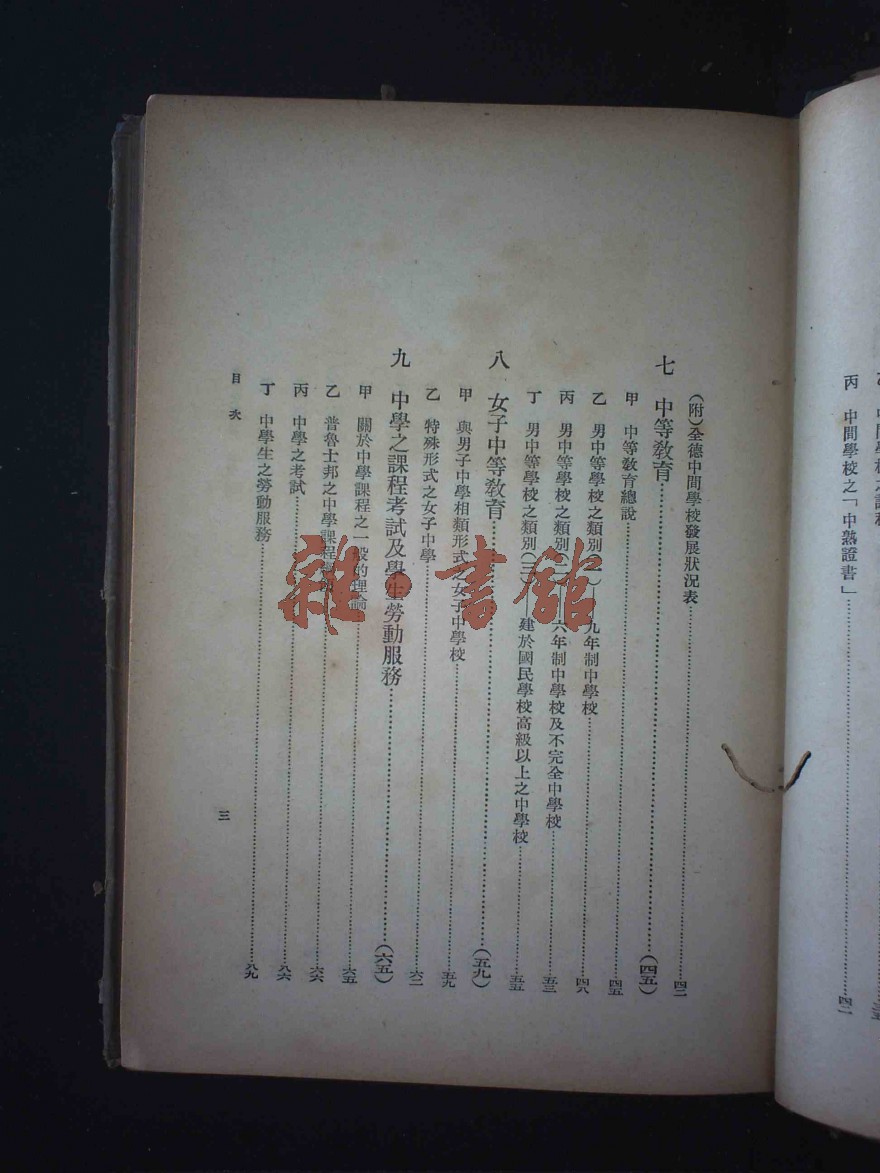 丙 中間學校之「中熟證書」……四二
(附)全德中間學校發展狀況表……四二
七 中等教育……(四五)
甲 中等教育總說……四五
乙 男中等學校之類別(一)——九年制中學校……四八
丙 男中等學校之類別(二)——六年制中學校及不完全中學校……五三
丁 男中等學校之類別(三)——建於國民學校高級以上之中學校……五五
八 女子中等教育……(五九)
甲 與男子中學相類形式之女子中學校……五九
乙 特殊形式之女子中學……六二
九 中學之課程考試及學生勞動服務……(六五)
甲 關於中學課程之一般的理論……六五
乙 普魯士邦之中學課程……六六
丙 中學之考試……八六
丁 中學生之勞動服務……八九
目次
三
雜·書館